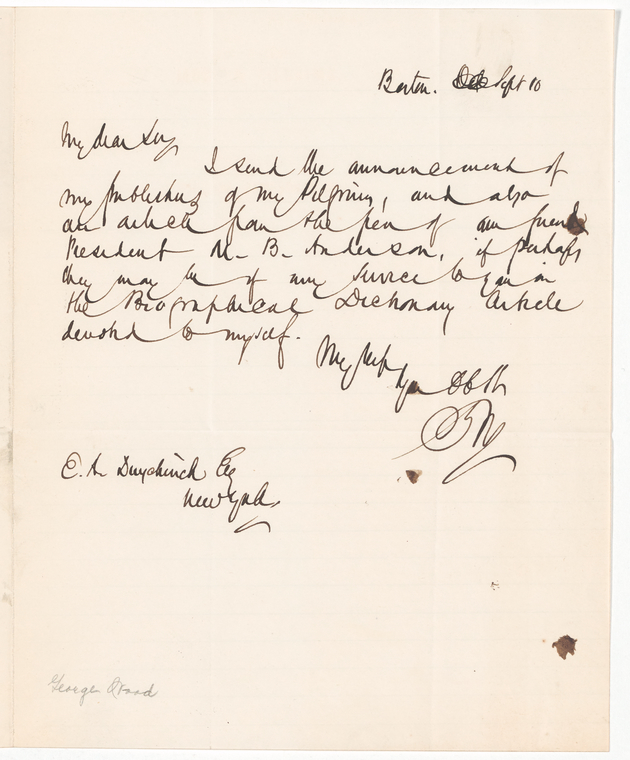 Boston. Sept 10
My dear Sir,
I send the announcement of
my publishers of my Pilgrims, and also
an article from the pen of our friend
President M. B. Anderson, if perhaps
they may be of any service to you in
the Biographical Dictionary Article
devoted to myself.
Very resp
Your Obt
E. A. Duyckinck Esq
New York
George